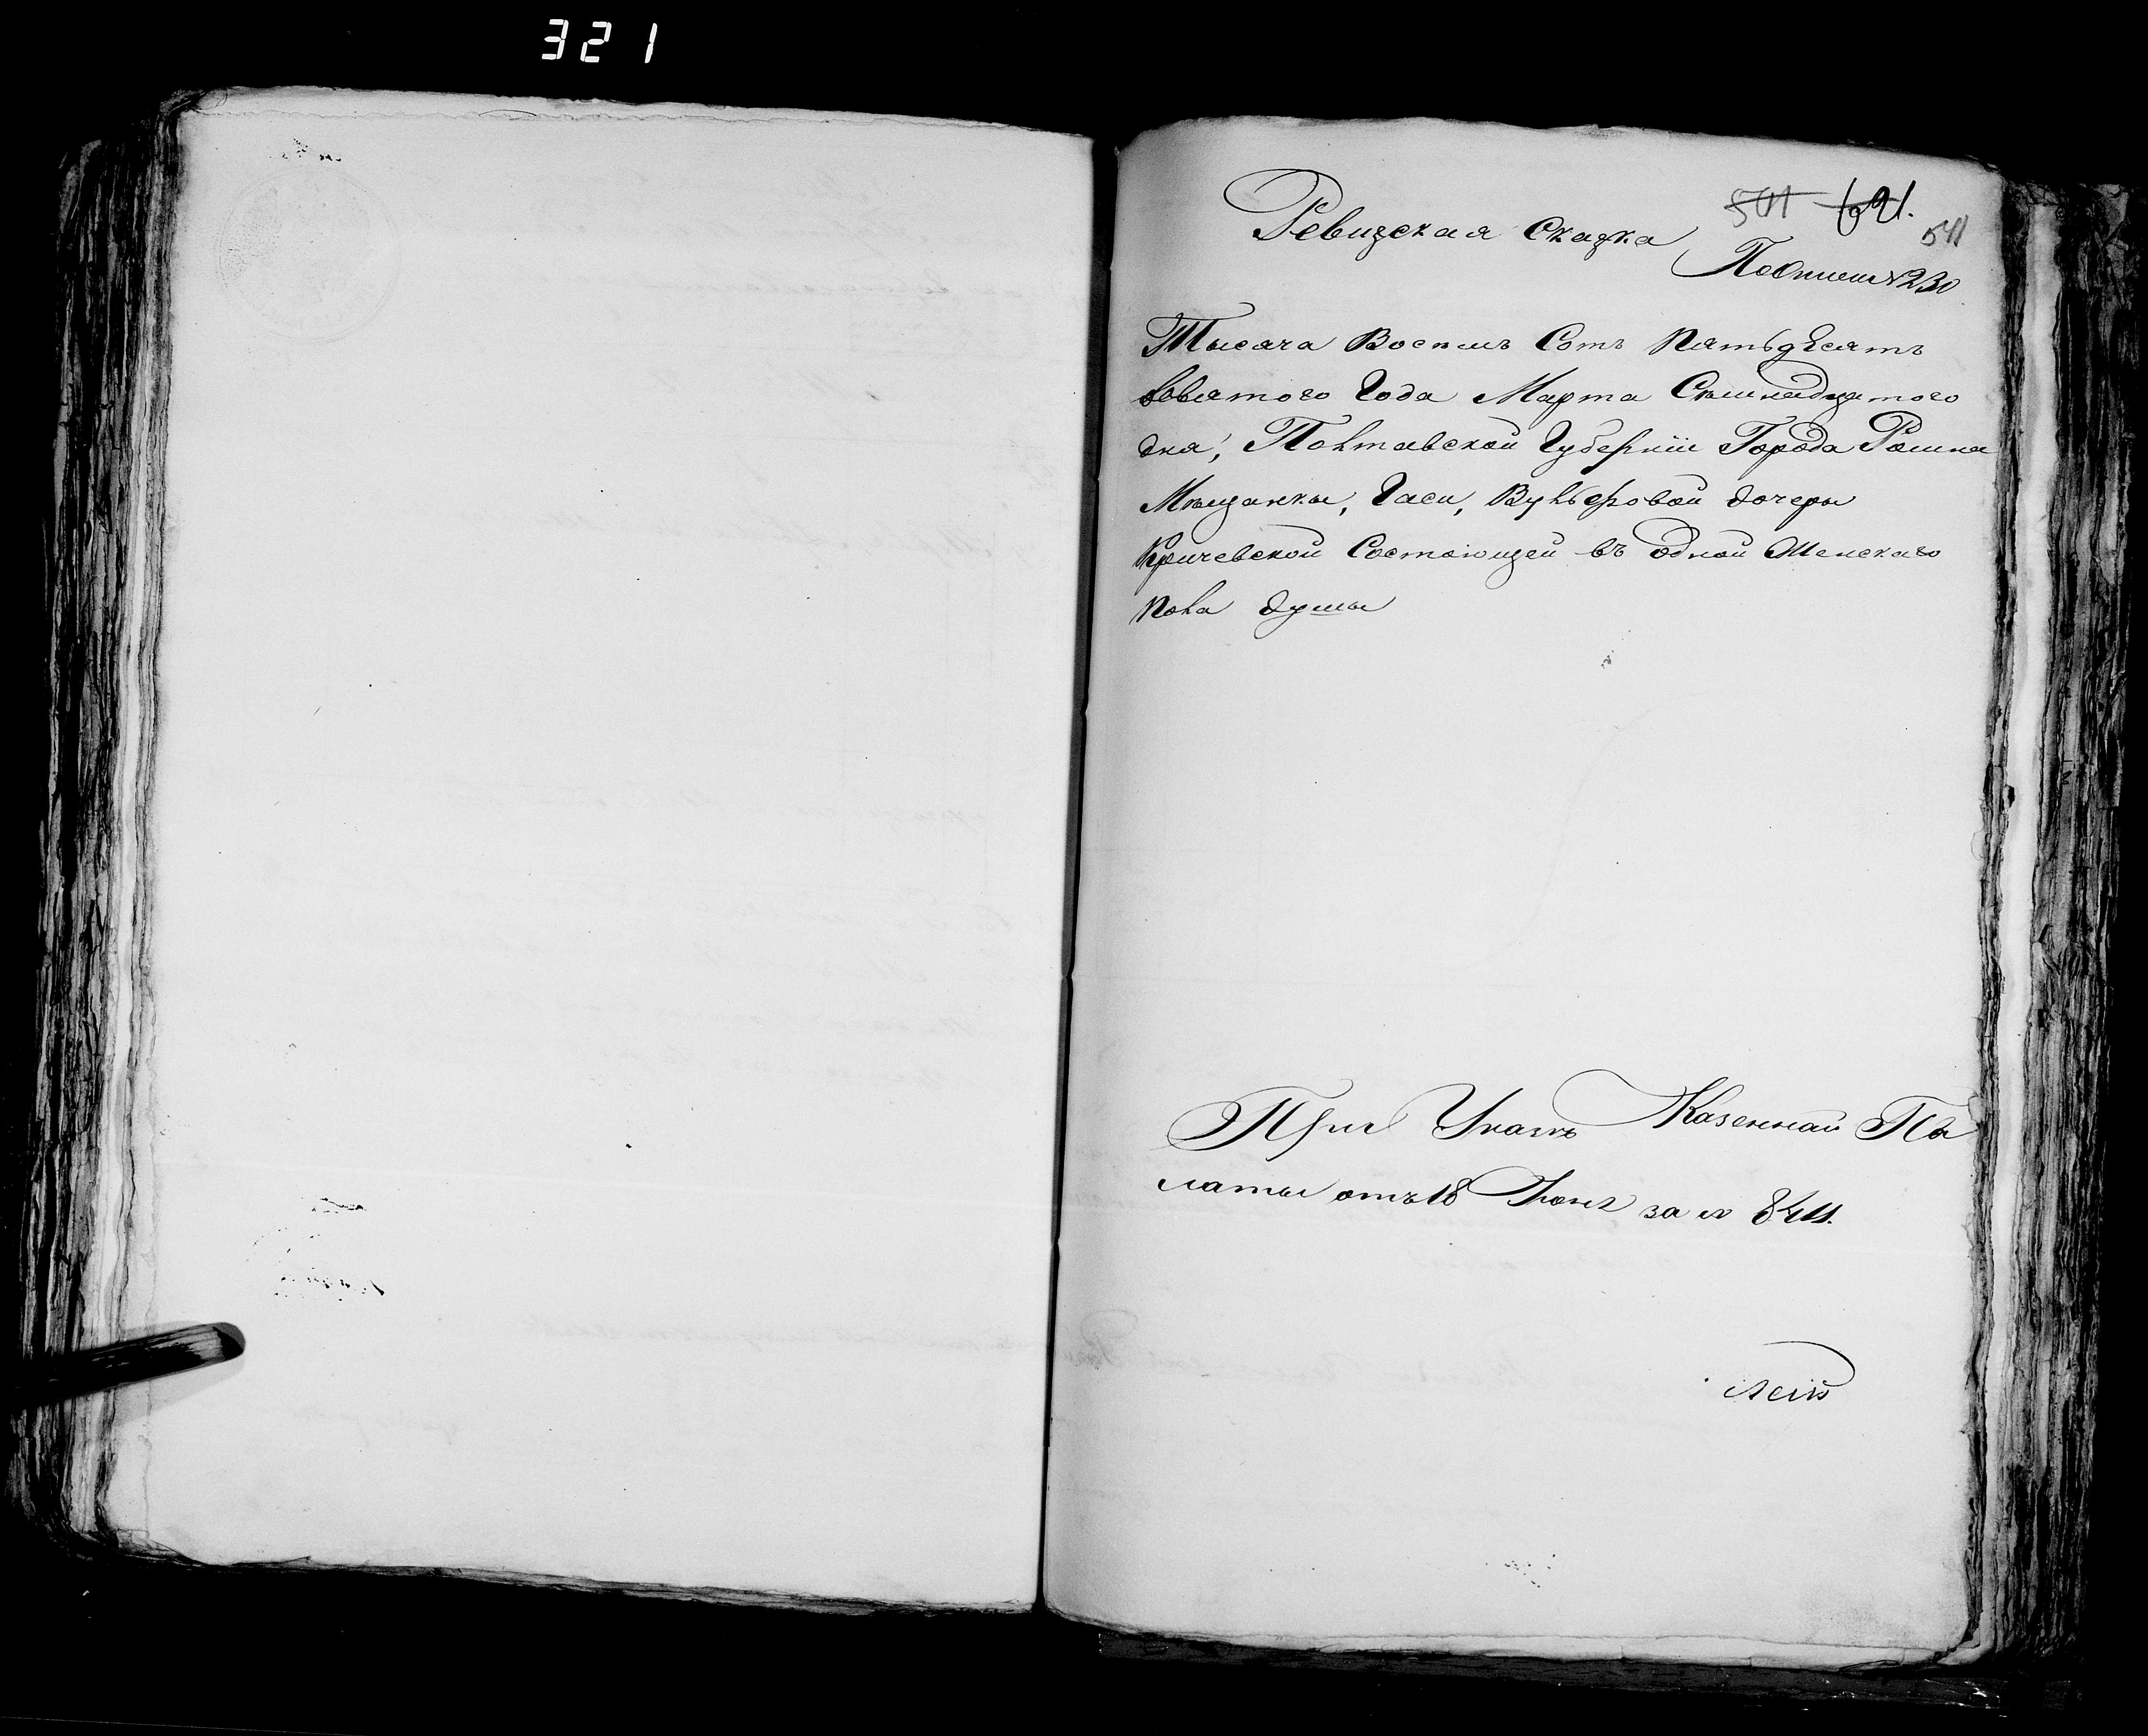 321
Ревизская Сказка
541 621.
541
По описи №230
Тысяча Восемъ Сотъ Пятьдесятъ
девятого Года Марта Сѣмнадцатого
дня, Полтавской Губерніи Города Ромна
Мѣщанки, Гаси, Вульфовой дочеры
Кричевской Состоющей въ одной Женскаго
пола душы
При Указѣ Казенной Па
латы отъ 18 Іюня за № 8411.